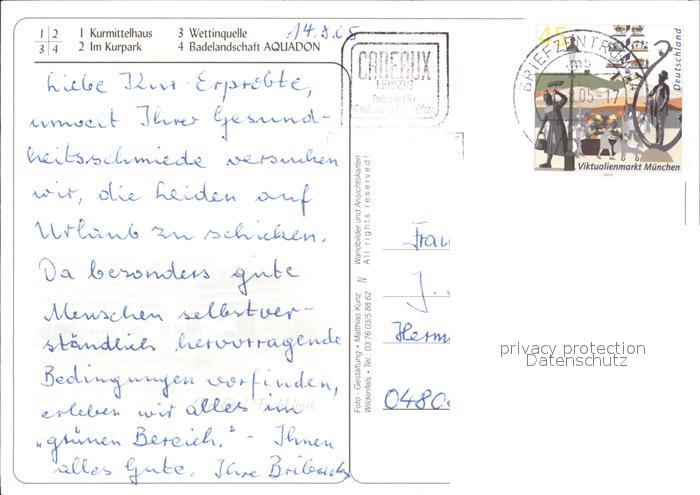 1 2 1 Kurmittelhaus 3 Wettinquelle
3 4 2 Im Kurpark 4 Badelandschaft AQUADON
14.8.05
Liebe Kur-Erprobte,
unweit Ihrer Gesund-
heitsschmiede versuchen
wir, die Leiden auf
Urlaub zu schicken.
Da besonders gute
Menschen selbstver-
ständlich hervorragende
Bedingungen vorfinden,
erleben wir alles im
„grünen Bereich." - Ihnen
alles Gute. Ihre
Foto - Gestaltung • Matthias Kunz
Wildenfels • Tel.: 03 76 03/5 88 62
Wandbilder und Ansichtskarten
All rights reserved!
CADEAUX
LEIPZIG
BRIEFZENTRUM
45
Deutschland
Viktualienmarkt München
2003
Frau
J.
Herm
0480
privacy protection
Datenschutz